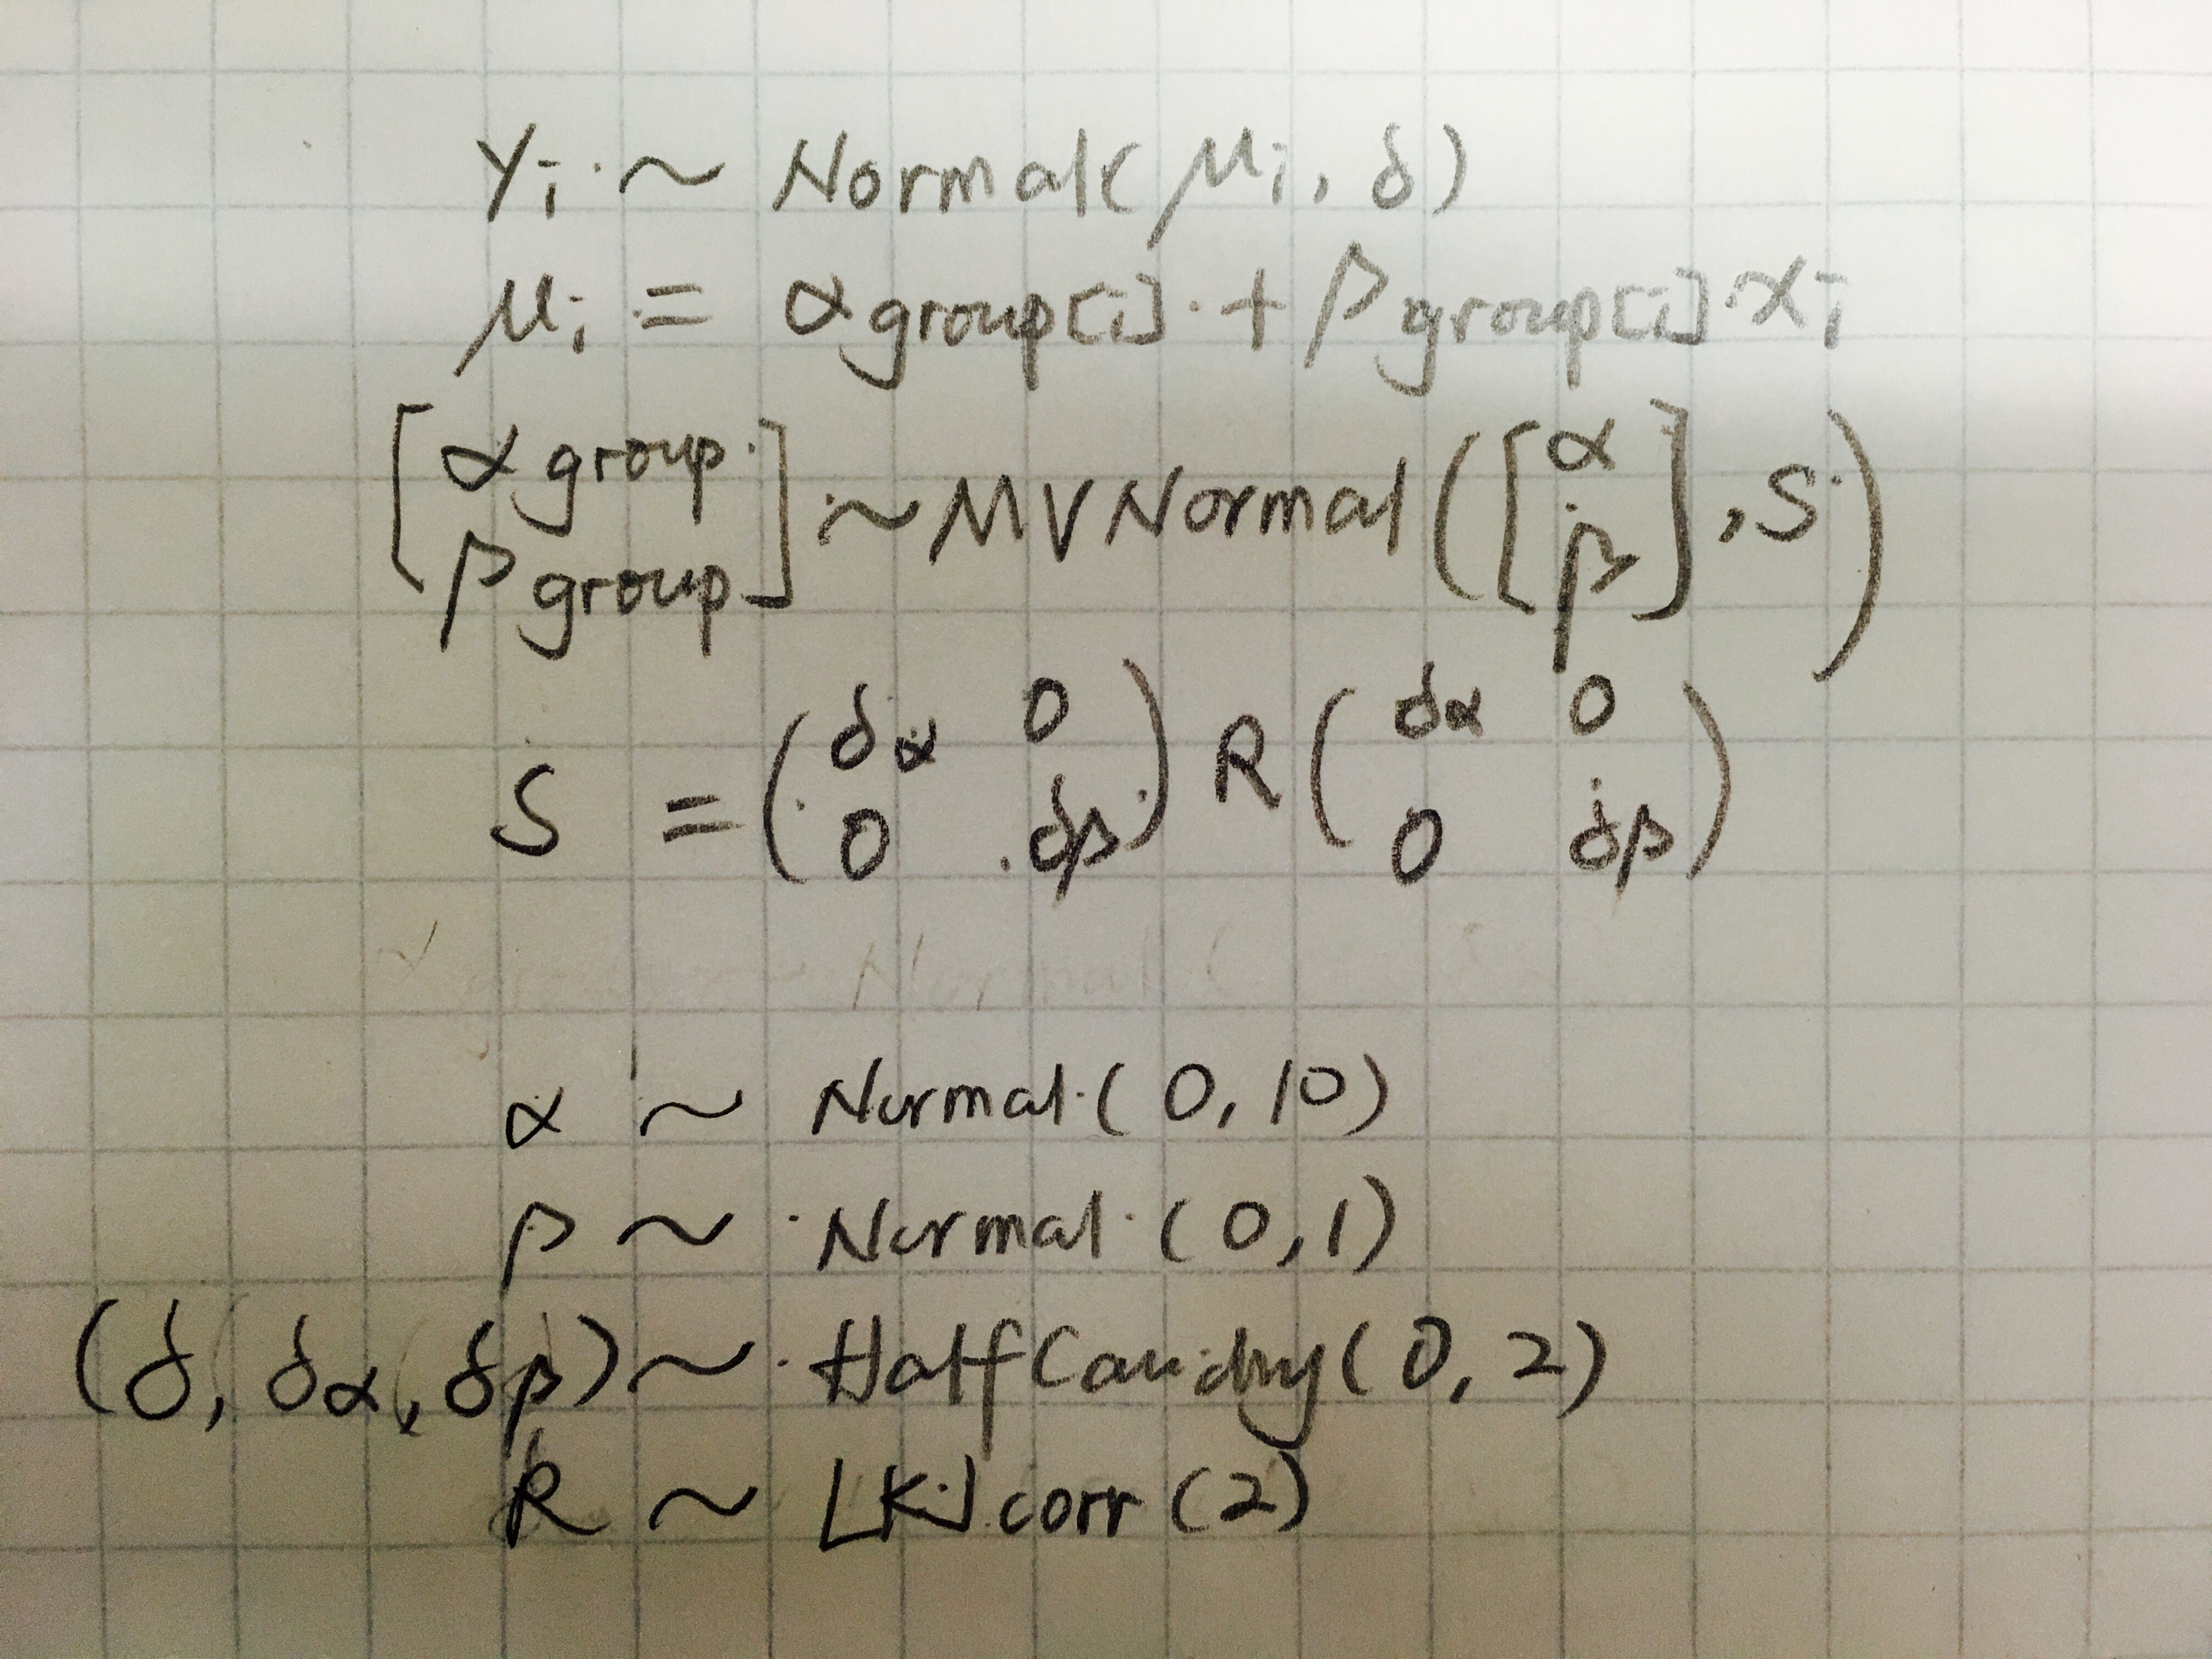 Yi ~ Normal(μi, δ)
μi = αgroup[i] + βgroup[i] xi
[αgroup βgroup] ~ MVNormal([α β], S)
S = (δα 0 0 δβ) R (δα 0 0 δβ)
Normal(
α ~ Normal(0, 10)
β ~ Normal(0, 1)
(δ, δα, δβ) ~ HalfCauchy(0, 2)
R ~ LKJcorr(2)